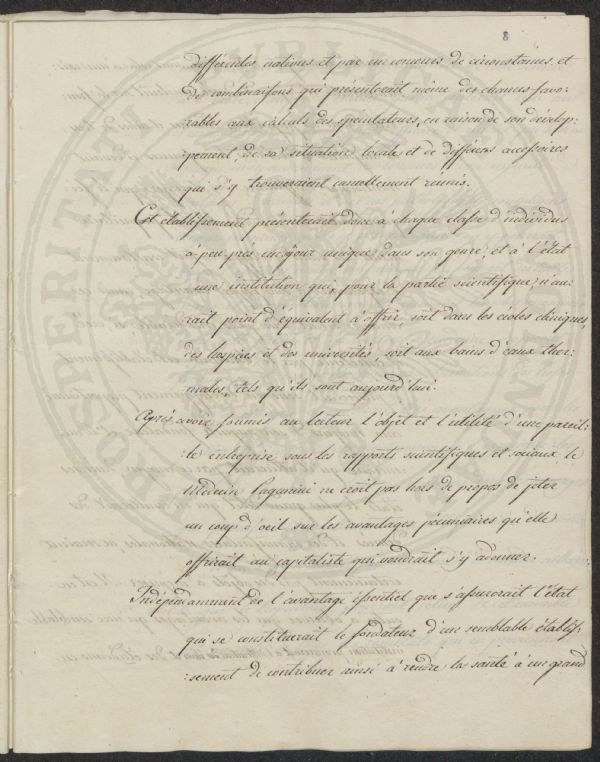 8
différentes nations et par un concours de circonstances et
de combinaisons qui présenterait même des chances favo:
rables aux calculs des spéculateurs, en raison de son dévelop:
pement, de sa situation locale et de différens accessoires
qui s'y trouveraient casuellement réunis.
Cet établissement présenterait donc à chaque classe d'individus
à peu près un séjour unique dans son genre, et à l'état
une institution qui, pour la partie scientifique, n'au:
rait point d'équivalent à offrir, soit dans les écoles cliniques,
des hospices et des universités, soit aux bains d'eaux ther:
males, tels qu'ils sont aujourd'hui.
Après avoir soumis au lecteur l'objet et l'utilité d'une pareil:
:le entreprise sous les rapports scientifiques et sociaux, le
Médecin Paganini ne croit pas hors de propos de jeter
un coup d'oeil sur les avantages pécuniaires qu'elle
offrirait au capitaliste qui voudrait s'y adonner.
Indépendamment de l'avantage essentiel que s'assurerait l'état
qui se constituerait le fondateur d'un semblable établis:
:sement de contribuer ainsi à rendre la santé à un grand
PROSPERITATI PUBLICAE